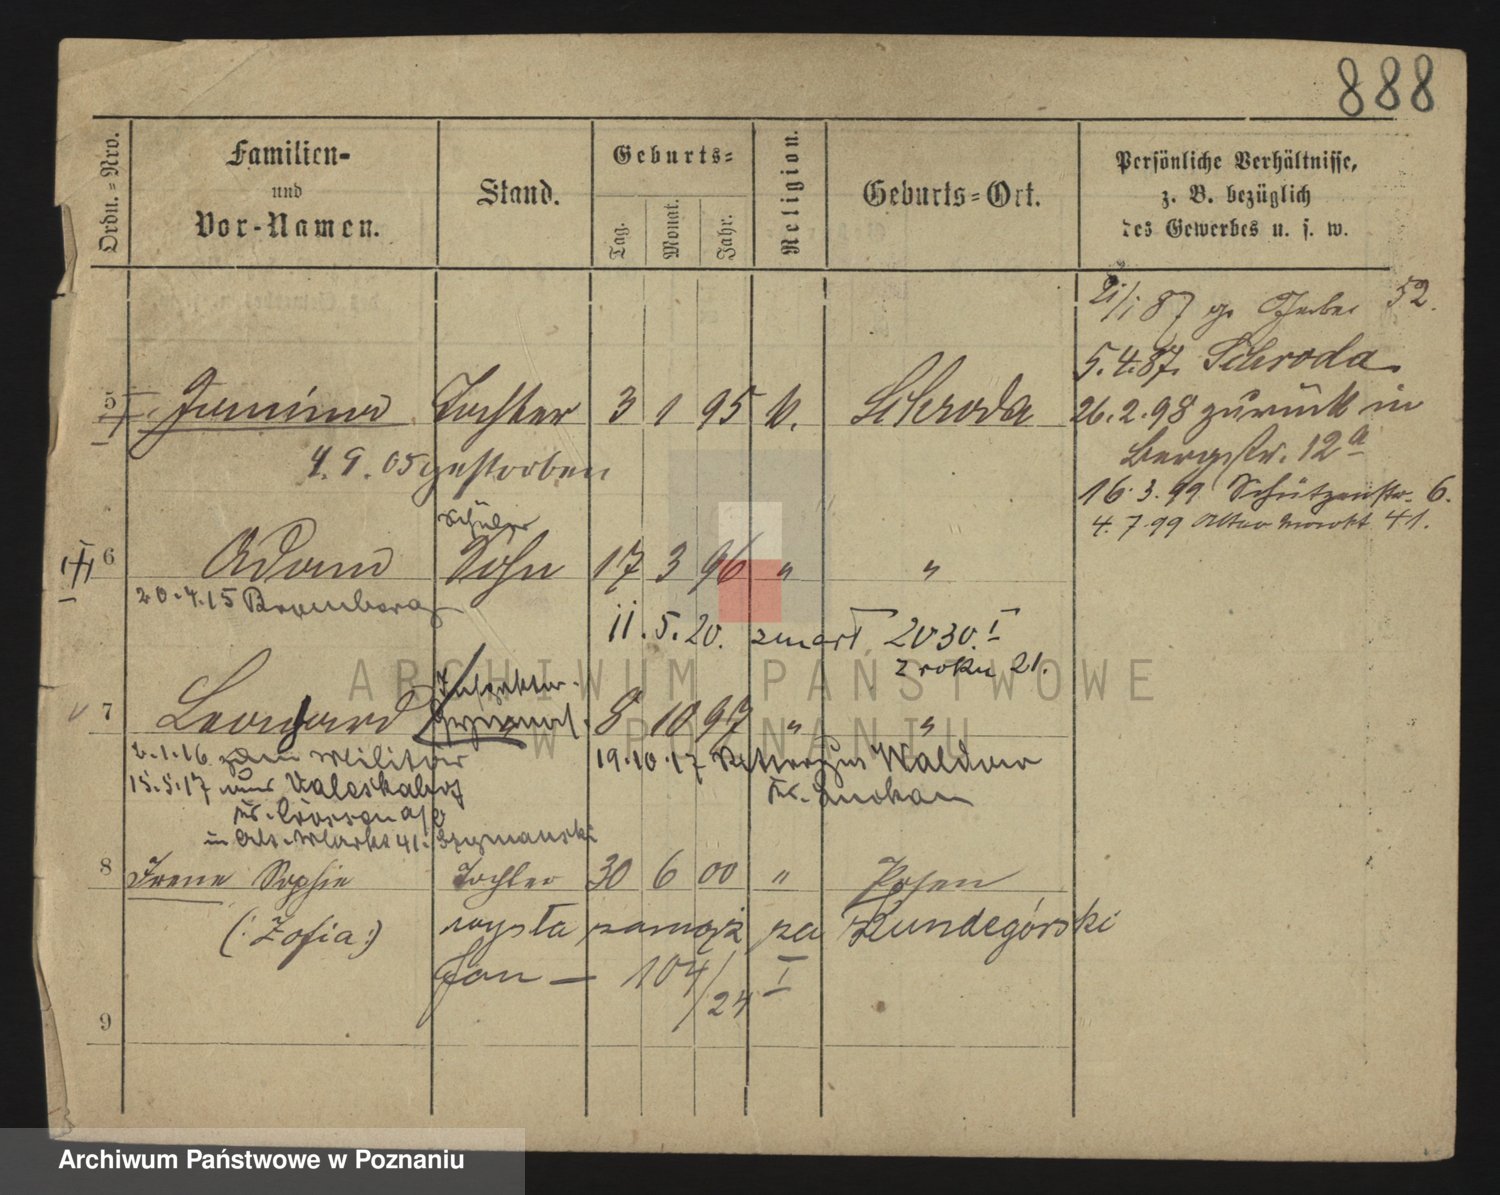 888
Ordn.=Nro.
Familien-
und
Vor-Namen.
Stand.
Geburts=
Tag.
Monat.
Jahr.
Religion.
Geburts=Ort.
Persönliche Verhältnisse,
z. B. bezüglich
des Gewerbes u. s. w.
21/1 87 52.
5.4.87. Schroda
5 Janina Tochter 3 1 95 k. Schroda
26.2.98 zurück in
Bergstr. 12a
4.9.05 gestorben
16.3.99 Schützenstr. 6.
4.7.99 Alter Markt 41.
Schüler
6 Adam Sohn 17 3 96 " "
20.4.15 Bromberg
11.5.20. zmarł 2030.I
z roku 21.
7 Leonard 8 10 97 " "
2.1.16 zum Militär
19.10.17 Rittergut Waldow
15.5.17 Kr. Luckau
Kr. Crossen a/O
in Alt. Markt 41.
8 Irene Sophie Tochter 30 6 00 " Posen
(:Zofia:) wyszła zamąż za Kundegórski
Jan — 104/24 I
9
ARCHIWUM PAŃSTWOWE
W POZNANIU
Archiwum Państwowe w Poznaniu